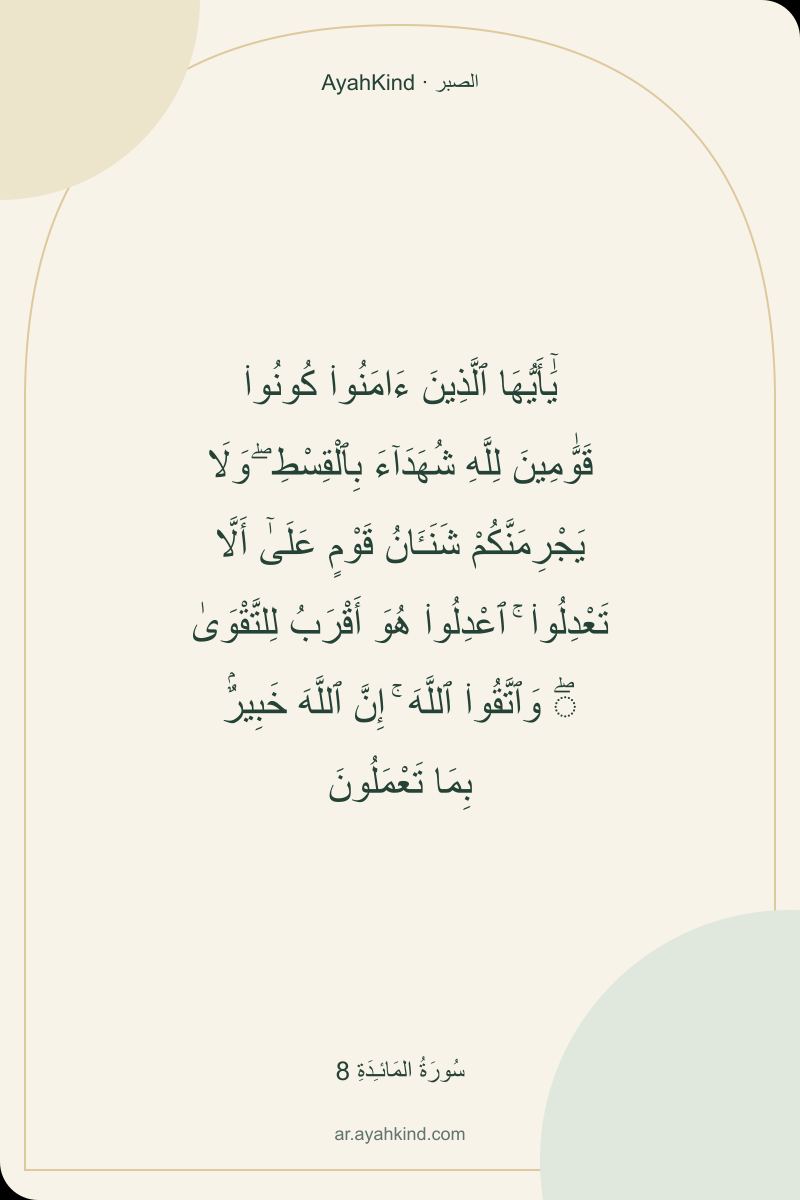 AyahKind · الصبر
يَٰٓأَيُّهَا ٱلَّذِينَ ءَامَنُوا۟ كُونُوا۟
قَوَّٰمِينَ لِلَّهِ شُهَدَآءَ بِٱلْقِسْطِ ۖ وَلَا
يَجْرِمَنَّكُمْ شَنَـَٔانُ قَوْمٍ عَلَىٰٓ أَلَّا
تَعْدِلُوا۟ ۚ ٱعْدِلُوا۟ هُوَ أَقْرَبُ لِلتَّقْوَىٰ
ۖ وَٱتَّقُوا۟ ٱللَّهَ ۚ إِنَّ ٱللَّهَ خَبِيرٌۢ
بِمَا تَعْمَلُونَ
سُورَةُ المَائـِدَةِ 8
ar.ayahkind.com